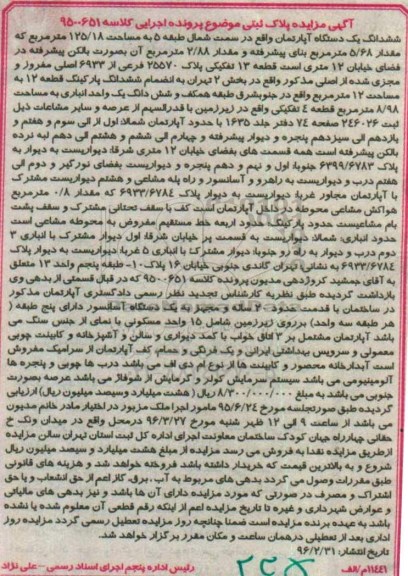 آگهی مزایده پلاک ثبتی موضوع پرونده اجرایی کلاسه ۹۵۰۰۶۵۱
ششدانگ یک دستگاه آپارتمان واقع در سمت شمال طبقه ۵ به مساحت ۱۲۵/۱۸ مترمربع که
مقدار ۵/۶۸ مترمربع بنای پیشرفته و مقدار ۲/۸۸ مترمربع آن بصورت بالکن پیشرفته در
فضای خیابان ۱۲ متری است قطعه ۱۳ تفکیکی پلاک ۲۵۵۷۰ فرعی از ۶۹۳۳ اصلی مفروز و
مجزی شده از اصلی مذکور واقع در بخش ۲ تهران به انضمام ششدانگ پارکینگ قطعه ۱۲ به
مساحت ۱۲ مترمربع واقع در جنوبشرق طبقه همکف و شش دانگ یک واحد انباری به مساحت
۸/۹۸ مترمربع قطعه ٤ تفکیکی واقع در زیرزمین با قدرالسهم از عرصه و سایر مشاعات ذیل
ثبت ۲٤۶۰۲۶ صفحه ۷٤ دفتر جلد ۱۶۳۵ با حدود آپارتمان شمالا: اول از الی سوم و هفتم و
یازدهم الی سیزدهم پنجره و دیوار پیشرفته و چهارم الی ششم و هشتم الی دهم لبه نرده
بالکن پیشرفته است همه قسمت های بفضای خیابان ۱۲ متری شرقا: دیواریست به دیوار به
پلاک ۶۳۹۹/۶۷۸۳ جنوبا: اول و نهم و دهم پنجره و دیواریست بفضای نورگیر و دوم الی
هفتم درب و دیواریست به راهرو و آسانسور و راه پله مشاعی و هشتم دیواریست مشترک
با آپارتمان مجاور غربا: دیواریست به دیوار پلاک ۶۹۳۳/۶۷۸٤ که مقدار ۰/۸ مترمربع
هواکش مشاعی محوطه در داخل آپارتمان است کف با سقف تحتانی مشترک و سقف پشت
بام مشاعیست حدود پارکینگ: حدود اربعه خط مستقیم مفروض به محوطه مشاعی است
حدود انباری: شمالا: دیواریست به قسمت پر خیابان شرقا: اول دیوار مشترک با انباری ۳
دوم درب و دیوار به راهرو جنوبا: دیوار مشترک با انباری ۵ غربا: دیواریست به دیوار پلاک
۶۹۳۳/۶۷۸٤ به نشانی تهران گاندی جنوبی خیابان ۱۶ پلاک ۱۰- طبقه پنجم واحد ۱۳ متعلق
به آقای جمشید کروژدهی مدیون پرونده کلاسه ۹۵۰۰۶۵۱ که در قبال قسمتی از بدهی وی
بازداشت گردیده طبق نظریه کارشناس تجدید نظر رسمی دادگستری آپارتمان مذکور
در ساختمان با قدمت حدود ۲۰ ساله و مجهز به یک دستگاه آسانسور دارای پنج طبقه (
هر طبقه سه واحد) برروی زیرزمین شامل ۱۵ واحد مسکونی با نمای از جنس سنگ می
باشد آپارتمان مشتمل بر ۳ اتاق خواب با کمد دیواری و سالن و آشپزخانه و کابینت چوبی
معمولی و سرویس بهداشتی ایرانی و یک فرنگی و حمام، کف آپارتمان از سرامیک مفروش
است آبدارخانه محصور و کابینت ها از نوع ام دی اف می باشد درب ها چوبی و پنجره ها
آلومینیومی می باشد سیستم سرمایش کولر و گرمایش از شوفاژ می باشد عرصه بصورت
جنوبی می باشد به مبلغ ۸/۳۰۰/۰۰۰/۰۰۰ ریال ( هشت میلیارد وسیصد میلیون ریال) ارزیابی
گردیده طبق صورتجلسه مورخ ۹۵/۶/۲٤ مامور اجرا ملک مزبور در اختیار مادر خانم مدیون
می باشد از ساعت ۹ الی ۱۲ ظهر شنبه مورخ ۹۶/۳/۲۷ درمحل واقع در میدان ونک خ
حقانی چهارراه جهان کودک ساختمان معاونت اجرای اداره کل ثبت استان تهران سالن مزایده
ازطریق مزایده نقدا به فروش می رسد مزایده از مبلغ هشت میلیارد و سیصد میلیون ریال
شروع و به بالاترین قیمت که خریدار داشته باشد فروخته خواهد شد و هزینه های قانونی
طبق مقررات وصول می گردد بدهی های مربوط به آب، برق، گاز اعم از حق انشعاب و یا حق
اشتراک و مصرف در صورتی که مورد مزایده دارای آن ها باشد و نیز بدهی های مالیاتی
و عوارض شهرداری و غیره تا تاریخ مزایده اعم از اینکه رقم قطعی آن معلوم شده یا نشده
باشد به عهده برنده مزایده است ضمنا چنانچه روز مزایده تعطیل رسمی گردد مزایده روز
اداری بعد از تعطیلی درهمان ساعت و مکان مقرر برگزار خواهد شد.
تاریخ انتشار: ۹۶/۲/۳۱
۱۱٤٤۱/م/الف رئیس اداره پنجم اجرای اسناد رسمی - علی نژاد